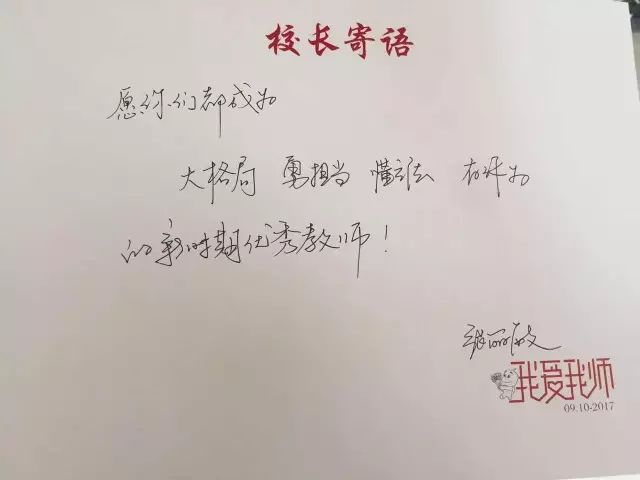 校长寄语
愿你们都成为
大格局 勇担当 懂方法 有作为
的新时期优秀教师！
张丽敏
我爱我师
09.10-2017